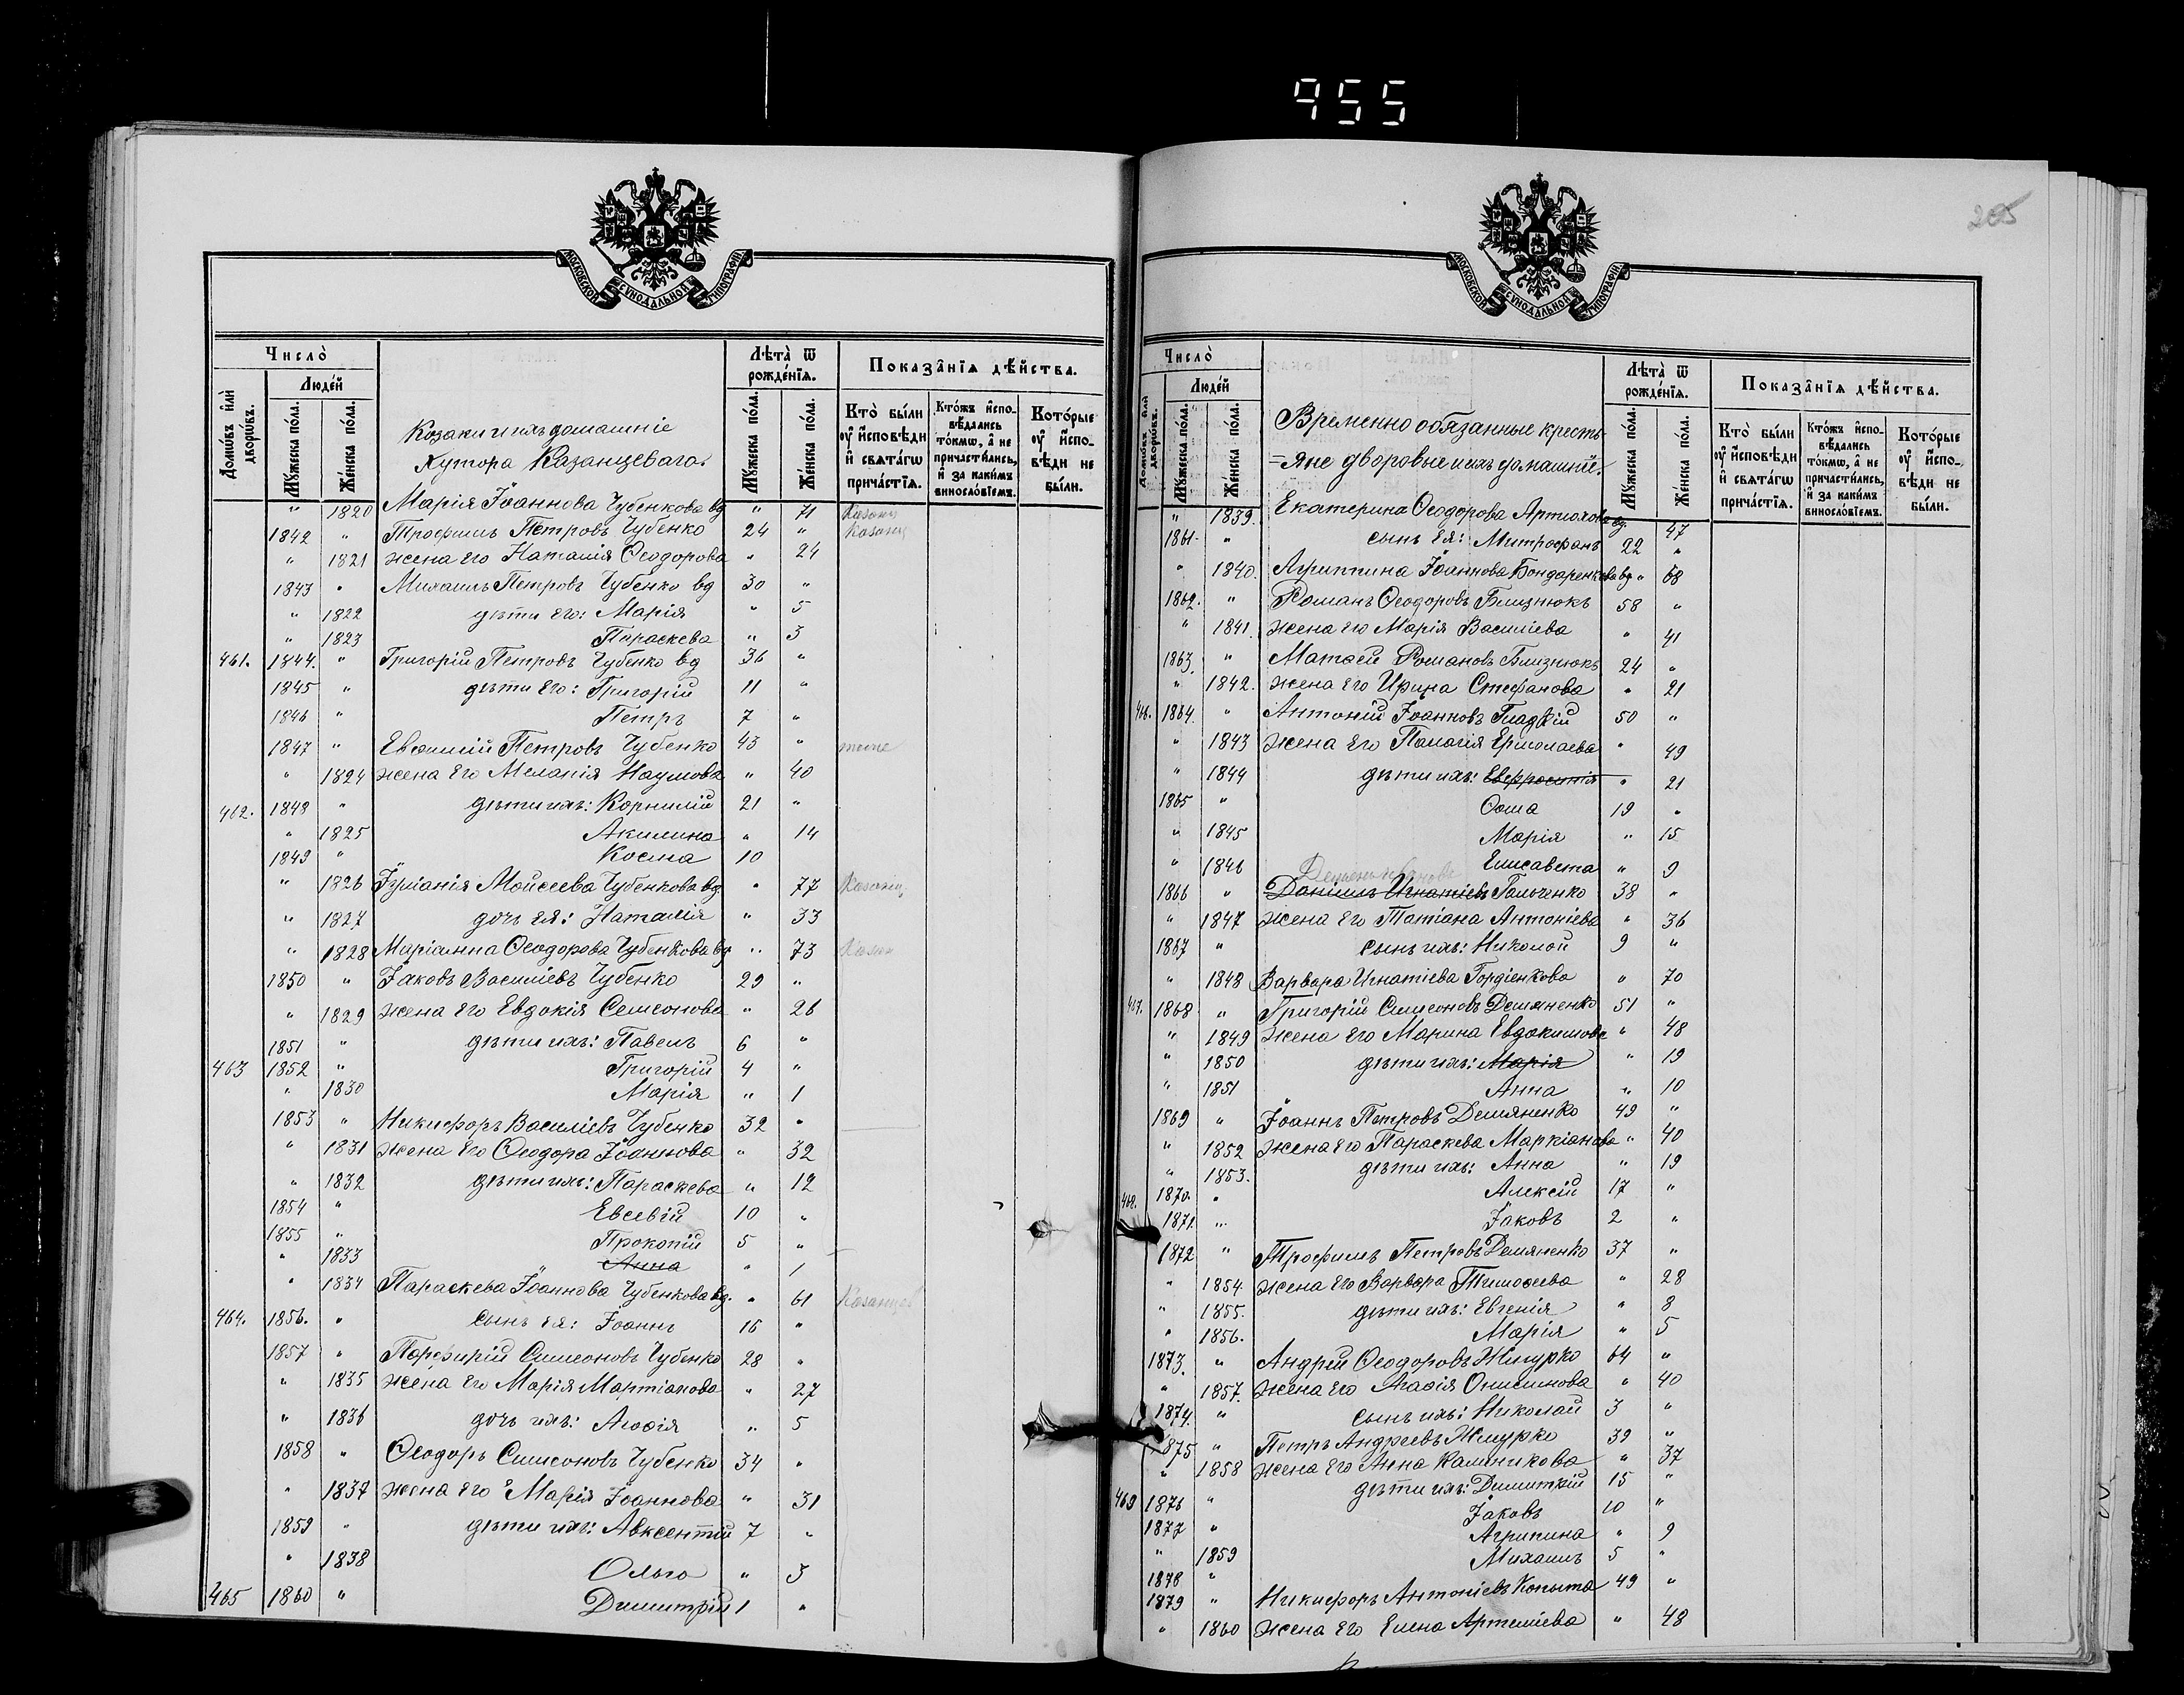 955
205
МОСКОВСКОЙ СѴНОДАЛЬНОЙ ТИПОГРАФІИ
Число̀
Домѡ́въ и҆лѝ дворѡ́въ.
Люде́й
Мꙋ́жеска по́ла.
Же́нска по́ла.
Лѣта̀ ѿ рожде́нїѧ.
Мꙋ́жеска по́ла.
Же́нска по́ла.
Показа̑нїѧ дѣ́йства.
Кто̀ бы́ли ᲂу҆ и҆сповѣ́ди и҆ свѧта́гѡ прича́стїѧ.
Кто́жъ и҆сповѣ́дались то́кмѡ, а҆ не причасти́лись, и҆ за каки́мъ винносло́вїемъ.
Кото́рые ᲂу҆ и҆сповѣ́ди не бы́ли.
Козаки и ихъ домашніе
Хутора Казанцевага.
" 1820 Марія Іоаннова Чубенкова вд " 71
1842 " Трофимъ Петровъ Чубенко 24 "
" 1821 жена его Наталія Ѳеодорова " 24
1843 " Михаилъ Петровъ Чубенко вд 30 "
" 1822 дѣти его: Марія " 5
" 1823 Параскева " 3
461. 1844. " Григорій Петровъ Чубенко вд 36 "
1845 " дѣти его: Григорій 11 "
1846 " Петръ 7 "
1847 " Евѳимій Петровъ Чубенко 43 "
" 1824 жена его Меланія Наумова " 40
462. 1848 " дѣти ихъ: Корнилій 21 "
" 1825 Акилина " 14
1849 " Косма 10
" 1826 Іуліанія Моисеева Чубенкова вд " 77
" 1827 дочь ея: Наталія " 33
" 1828 Маріанна Ѳеодорова Чубенкова вд " 73
1850 " Іаковъ Василіевъ Чубенко 29 "
" 1829 жена его Евдокія Семсонова " 26
1851 " дѣти ихъ: Павелъ 6 "
463 1852 " Григорій 4 "
" 1830 Марія " 1
1853 " Никифоръ Василіевъ Чубенко 32 "
" 1831 жена его Ѳеодора Іоаннова " 32
" 1832 дѣти ихъ: Параскева " 12
1854 " Евсевій 10 "
1855 " Прокопій 5 "
" 1833 Анна " 1
" 1834 Параскева Іоаннова Чубенкова вд. " 61
464. 1856. " сынъ ея: Іоаннъ 16 "
1857 " Порфирій Симеоновъ Чубенко 28 "
" 1835 жена его Марія Мартіанова " 27
" 1836 дочь ихъ: Агафія " 5
1858 " Ѳеодоръ Симеоновъ Чубенко 34 "
" 1837 жена его Марія Іоаннова " 31
1859 " дѣти ихъ: Авксентій 7 "
" 1838 Ольга " 3
465 1860 " Димитрій 1 "
МОСКОВСКОЙ СѴНОДАЛЬНОЙ ТИПОГРАФІИ
Число̀
Домѡ́въ и҆лѝ дворѡ́въ.
Люде́й
Мꙋ́жеска по́ла.
Же́нска по́ла.
Лѣта̀ ѿ рожде́нїѧ.
Мꙋ́жеска по́ла.
Же́нска по́ла.
Показа̑нїѧ дѣ́йства.
Кто̀ бы́ли ᲂу҆ и҆сповѣ́ди и҆ свѧта́гѡ прича́стїѧ.
Кто́жъ и҆сповѣ́дались то́кмѡ, а҆ не причасти́лись, и҆ за каки́мъ винносло́вїемъ.
Кото́рые ᲂу҆ и҆сповѣ́ди не бы́ли.
Временно обязанные кресть-
=яне дворовые и ихъ домашніе.
" 1839. Екатерина Ѳеодорова Артюхова вд. " 47
1861 " сынъ ея: Митрофанъ 22 "
" 1840. Агриппина Іоаннова Бондаренкова вд " 68
1862. " Романъ Ѳеодоровъ Близнюкъ 58 "
" 1841. жена его Марія Василіева " 41
1863. " Матѳей Романовъ Близнюкъ 24 "
" 1842. жена его Ирина Стефанова " 21
466. 1864. " Антоній Іоанновъ Гладкій 50 "
" 1843 жена его Палагія Ермолаева " 49
" 1844 дѣти ихъ: Евфросинія " 21
1865 " Ѳома 19 "
" 1845 Марія " 15
" 1846 Елисавета " 9
1866 " Даніилъ Игнатіевъ Гальченко 38 "
" 1847 жена его Татіана Антоніева " 36
1867 " сынъ ихъ: Николай 9 "
" 1848 Варвара Игнатіева Гордіенкова " 70
467. 1868 " Григорій Симеоновъ Демяненко 51 "
" 1849 жена его Марина Евдокимова " 48
" 1850 дѣти ихъ: Марія " 19
" 1851 Анна " 10
1869 " Іоаннъ Петровъ Демяненко 49 "
" 1852 жена его Параскева Маркіанова " 40
" 1853. дѣти ихъ: Анна " 19
468. 1870. " Алексій 17 "
1871. " Іаковъ 2 "
1872 " Трофимъ Петровъ Демяненко 37 "
" 1854 жена его Варвара Тимоѳеева " 28
" 1855. дѣти ихъ: Евгенія " 8
" 1856. Марія " 5
1873. " Андрей Ѳеодоровъ Жмурко 64 "
" 1857. жена его Агаѳія Онисимова " 40
1874. " сынъ ихъ: Николай 3 "
1875 " Петръ Андреевъ Жмурко 39 "
" 1858 жена его Анна Калиникова " 37
469 1876 " дѣти ихъ: Димитрій 15 "
1877 " Іаковъ 10 "
" 1859 Агрипина " 9
1878 " Михаилъ 5 "
1879 " Никифоръ Антоніевъ Копыта 49 "
" 1860 жена его Елена Артеміева " 48